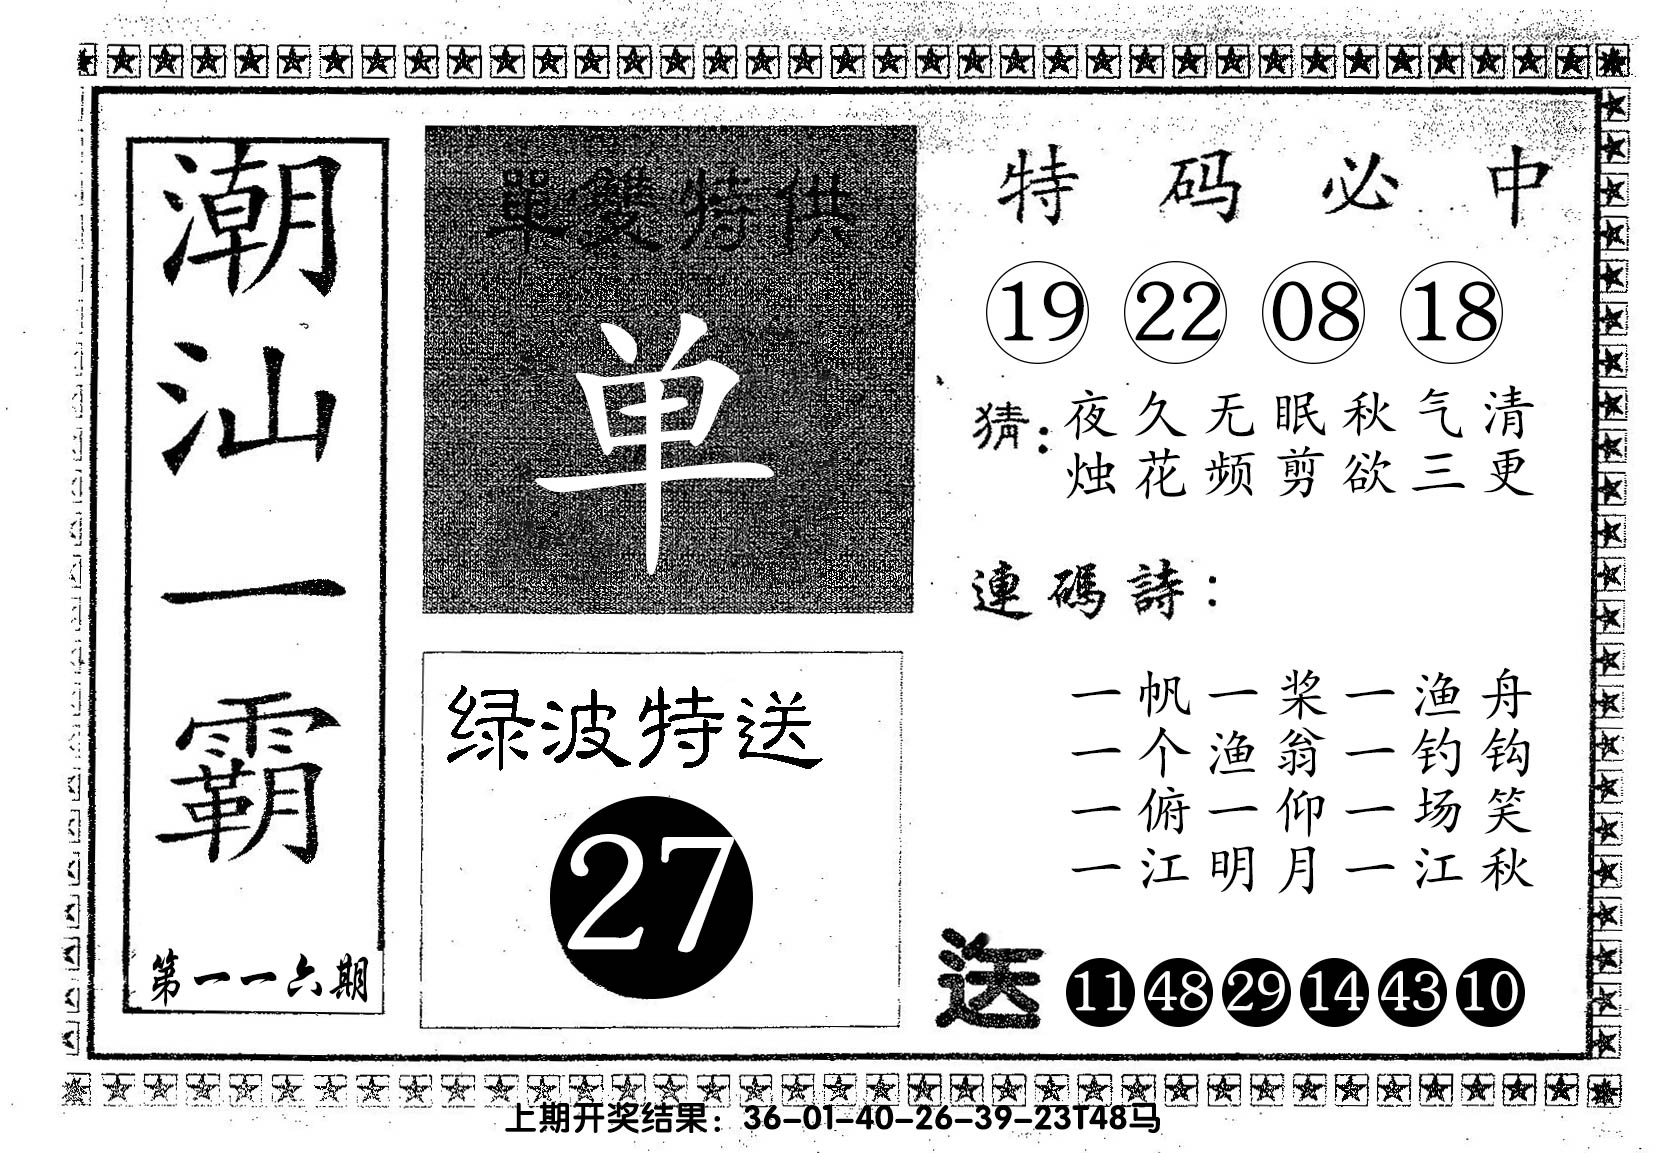 潮汕一霸
第一一六期
單雙特供
单
绿波特送
27
特码必中
19 22 08 18
猜：夜久无眠秋气清
烛花频剪欲三更
連碼詩：
一帆一桨一渔舟
一个渔翁一钓钩
一俯一仰一场笑
一江明月一江秋
送 11 48 29 14 43 10
上期开奖结果：36-01-40-26-39-23T48马